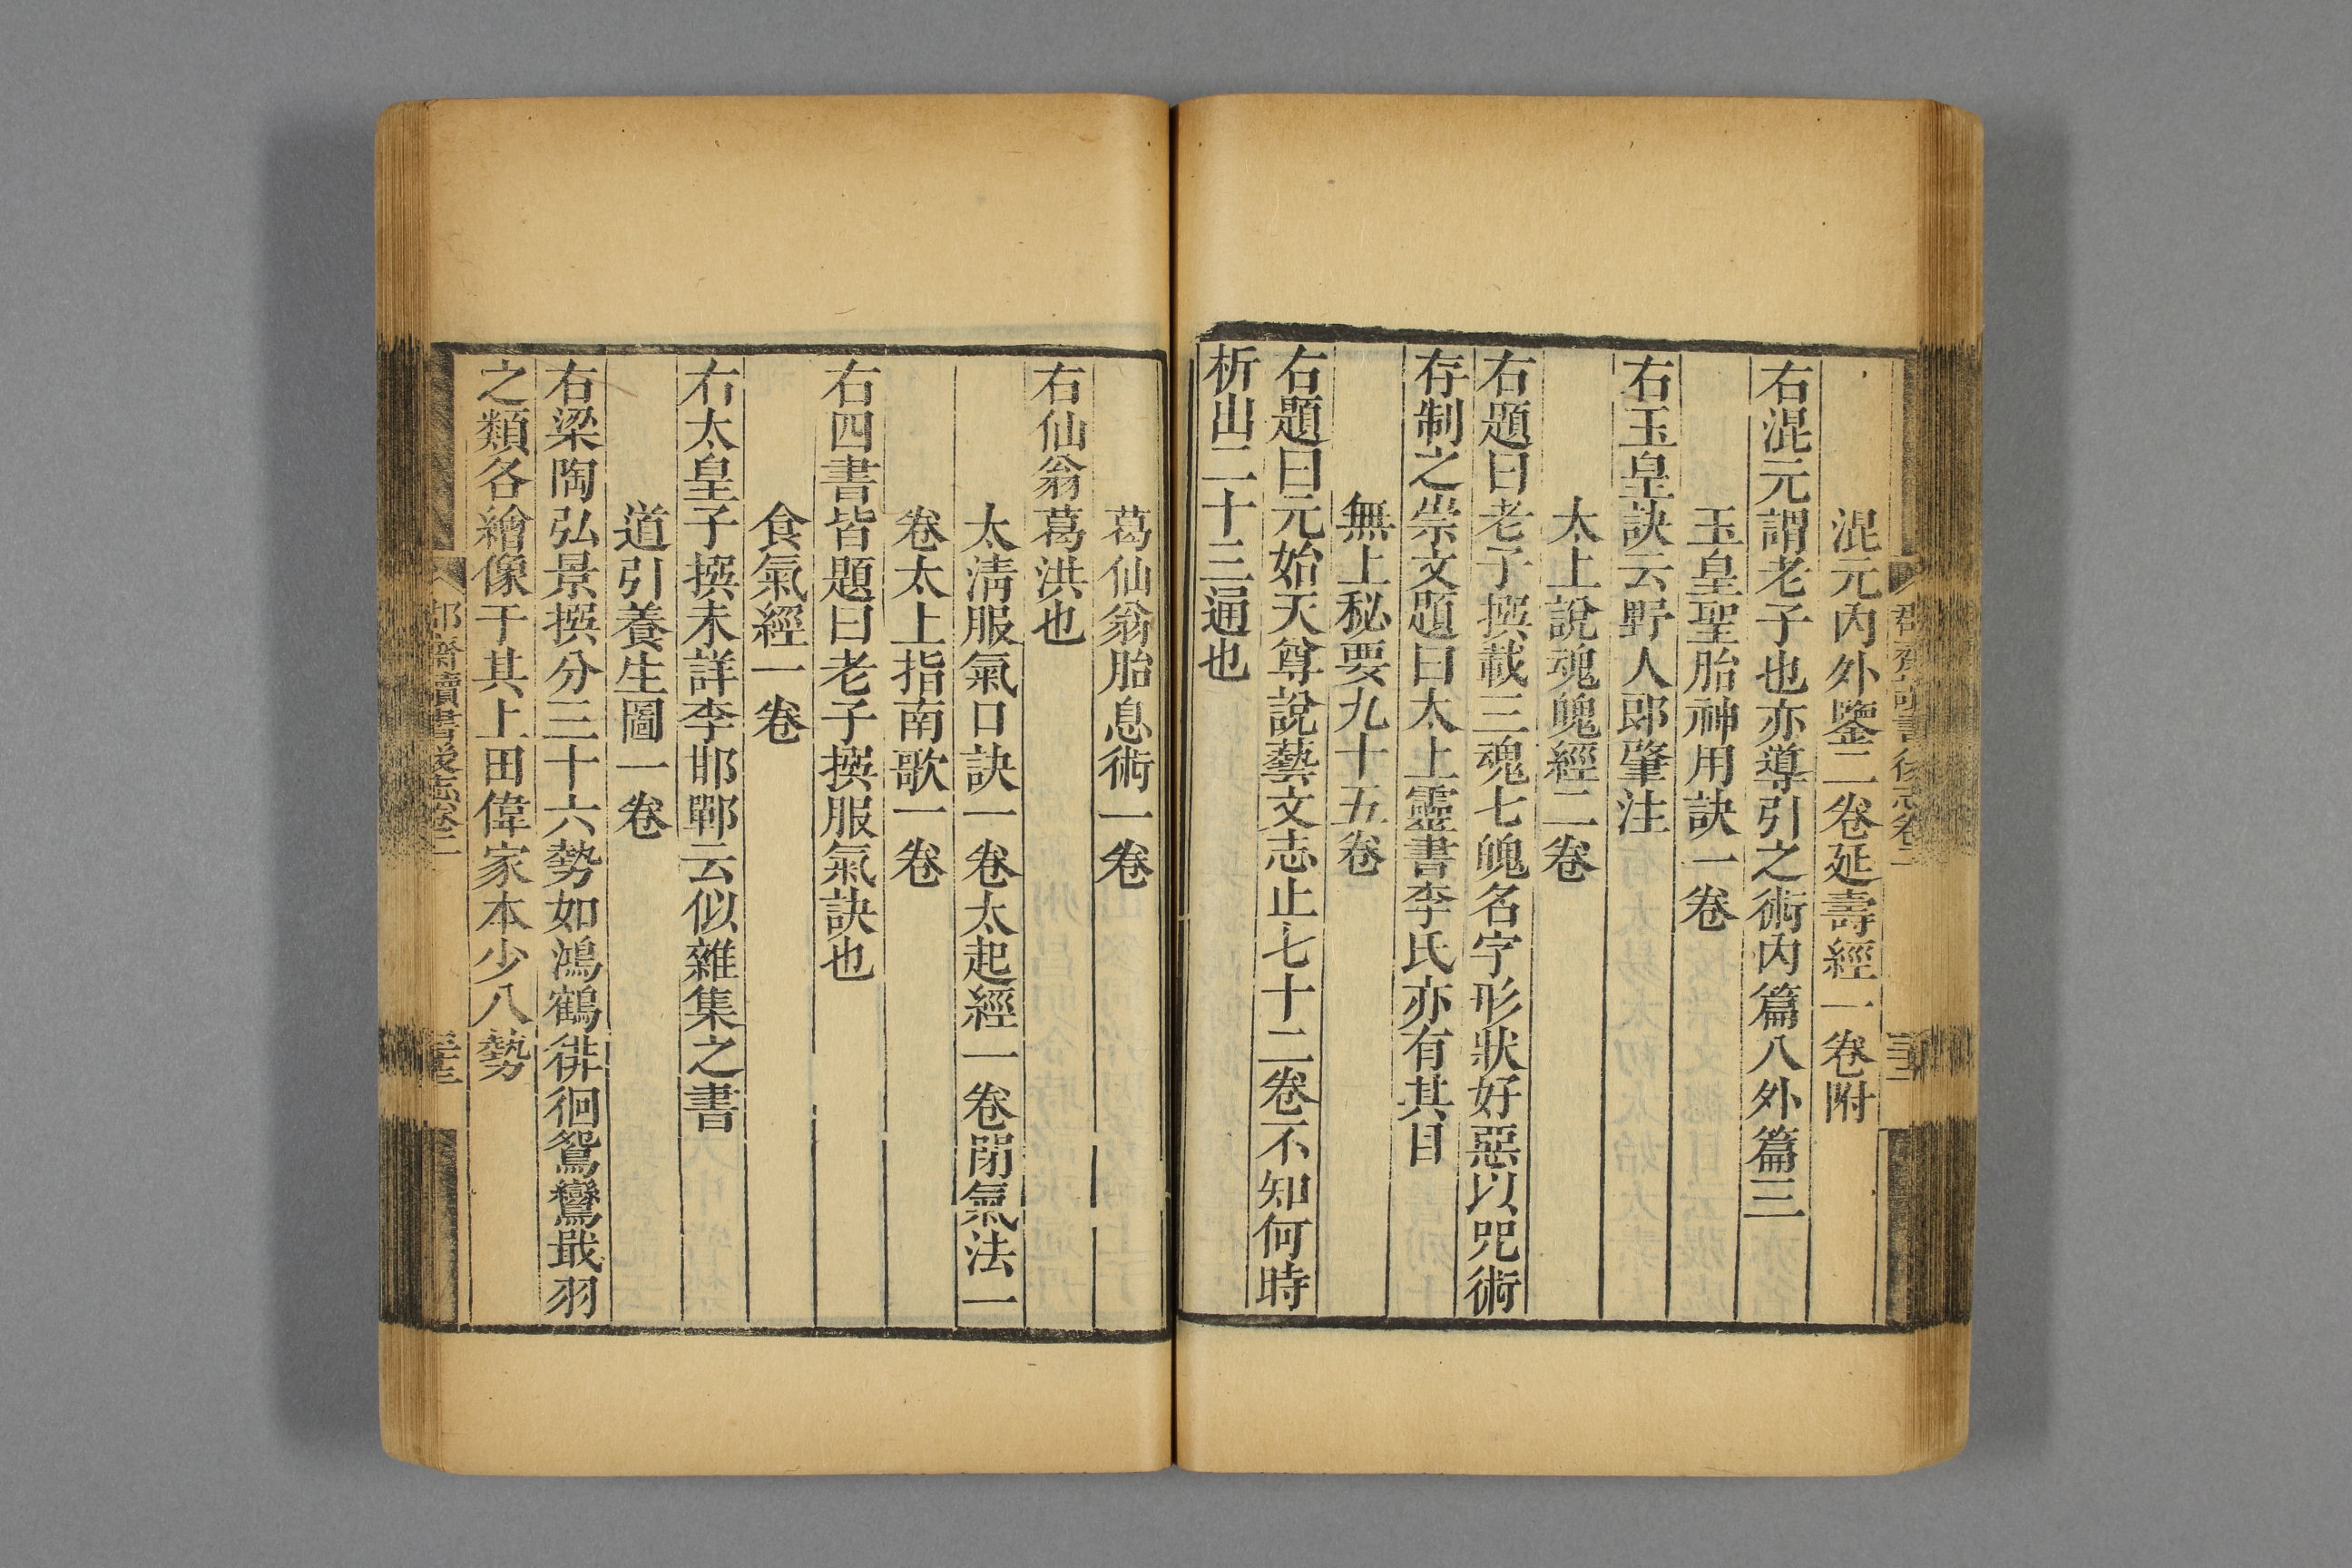 混元內外鑒二卷延壽經一卷附
右混元謂老子也亦導引之術內篇八外篇三
玉皇聖胎神用訣一卷
右玉皇訣云野人郎肇注
太上說魂魄經二卷
右題曰老子撰載三魂七魄名字形狀好惡以咒術
存制之祟文題曰太上靈書李氏亦有其目
無上秘要九十五卷
右題曰元始天尊說藝文志止七十二卷不知何時
析出二十三通也
葛仙翁胎息術一卷
右仙翁葛洪也
太淸服氣口訣一卷太起經一卷閉氣法一
卷太上指南歌一卷
右四書皆題曰老子撰服氣訣也
食氣經一卷
右太皇子撰未詳李邯鄲云似雜集之書
道引養生圖一卷
右梁陶弘景撰分三十六勢如鴻鶴徘徊鴛鴦戢羽
之類各繪像于其上田偉家本少八勢
郡齋讀書後志卷二